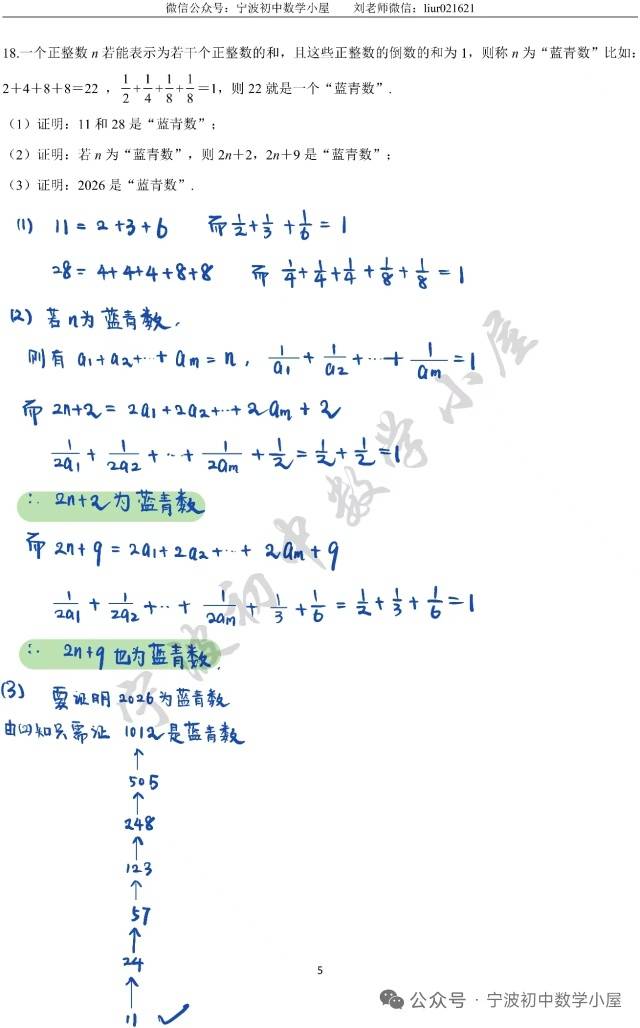 微信公众号：宁波初中数学小屋 刘老师微信：liur021621
18.一个正整数 n 若能表示为若干个正整数的和，且这些正整数的倒数的和为 1，则称 n 为“蓝青数”比如：
2+4+8+8=22 ，1/2+1/4+1/8+1/8=1，则 22 就是一个“蓝青数”.
（1）证明：11 和 28 是“蓝青数”；
（2）证明：若 n 为“蓝青数”，则 2n+2，2n+9 是“蓝青数”；
（3）证明：2026 是“蓝青数”.
(1) 11 = 2+3+6 而 1/2+1/3+1/6 = 1
28 = 4+4+4+8+8 而 1/4+1/4+1/4+1/8+1/8 = 1
(2) 若n为蓝青数,
则有 a₁+a₂+…+aₘ = n, 1/a₁+1/a₂+…+1/aₘ=1
而 2n+2 = 2a₁+2a₂+…+2aₘ+2
1/2a₁+1/2a₂+…+1/2aₘ+1/2=1/2+1/2=1
∴ 2n+2为蓝青数
而 2n+9 = 2a₁+2a₂+…+2aₘ+9
1/2a₁+1/2a₂+…+1/2aₘ+1/3+1/6=1/2+1/3+1/6=1
∴ 2n+9也为蓝青数.
(3) 要证明2026为蓝青数
由(2)知只需证 1012是蓝青数
↑
505
↑
248
↑
123
↑
57
↑
24
↑
11 ✓
宁波初中数学小屋
5
公众号 · 宁波初中数学小屋